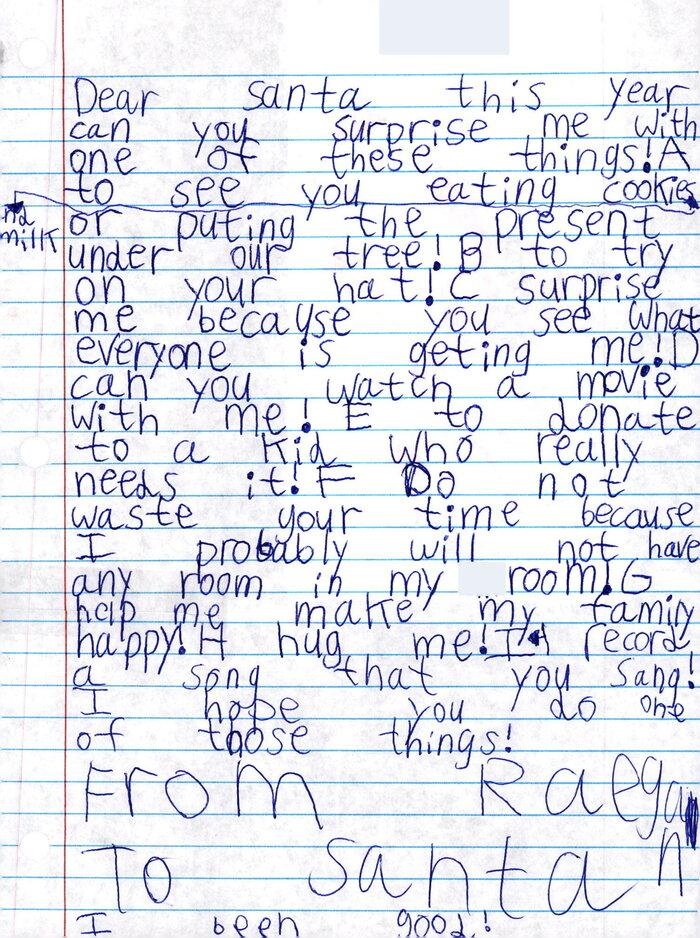 Dear santa this year
can you surprise me with
one of these things! A
to see you eating cookies
nd milk
or puting the present
under our tree! B to try
on your hat! C surprise
me because you see what
everyone is geting me! D
can you watch a movie
with me! E to donate
to a kid who really
needs it! F Do not
waste your time because
I probably will not have
any room in my room! G
help me make my family
happy! H hug me! I record
a song that you sang!
I hope you do one
of those things!
From Raegan
To santa
I been good!